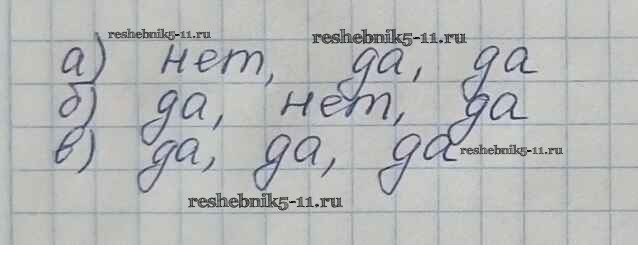 reshebnik5-11.ru reshebnik5-11.ru
а) нет, да, да
б) да, нет, да
в) да, да, да reshebnik5-11.ru
reshebnik5-11.ru